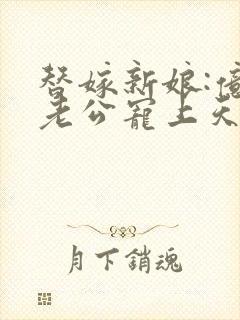 替嫁新娘:億
老公寵上天
月下銷魂